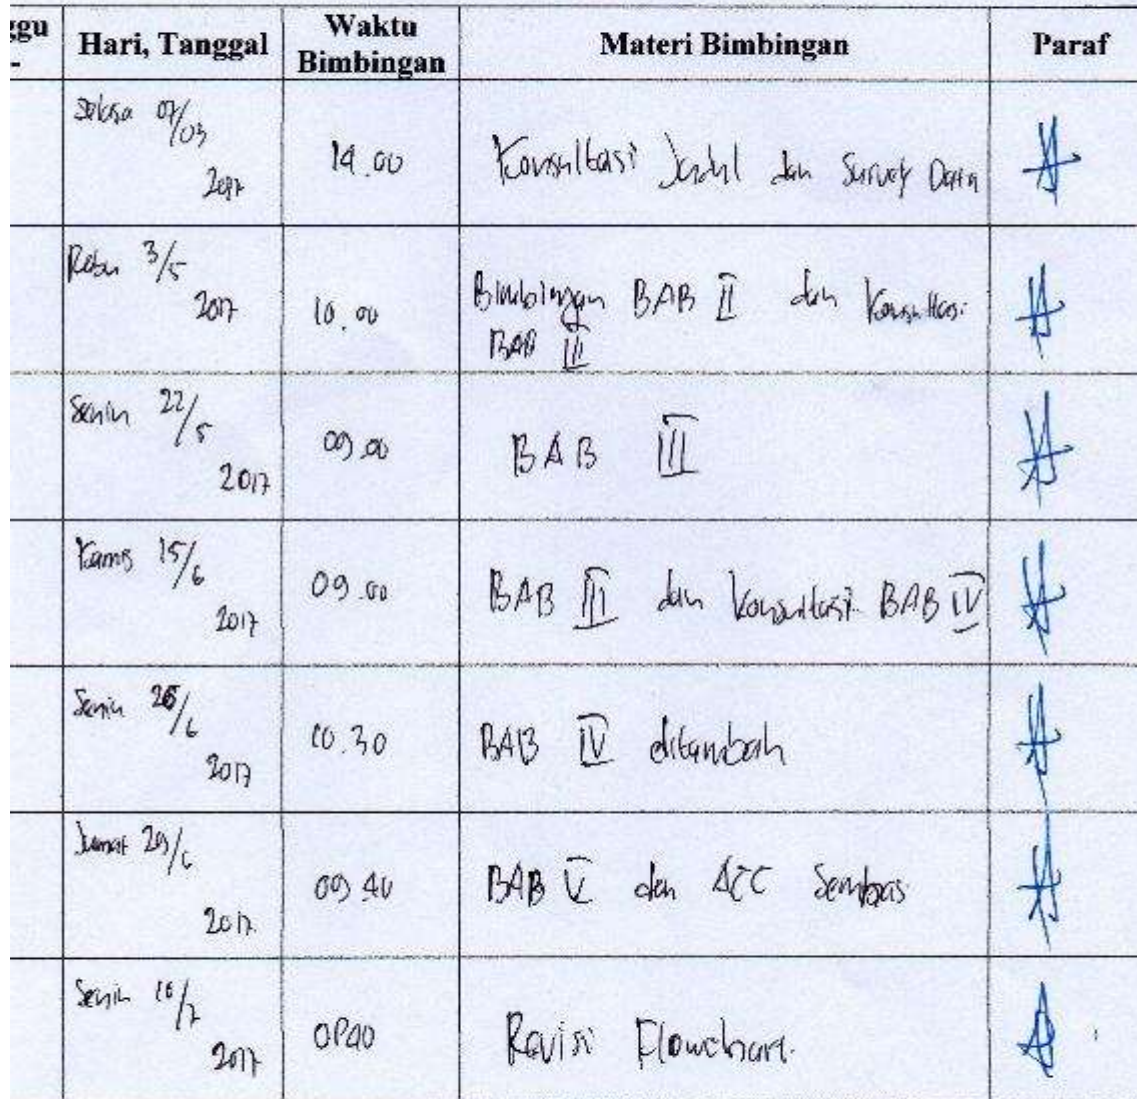 ggu Hari, Tanggal Waktu Bimbingan Materi Bimbingan Paraf
-
Selasa 07/03
2017 14.00 Konsultasi Judul dan Survey Data
Rabu 3/5
2017 10.00 Bimbingan BAB II dan Konsultasi
BAB III
Senin 22/5
2017 09.00 BAB III
Kamis 15/6
2017 09.00 BAB III dan Konsultasi BAB IV
Senin 6
2017 10.30 BAB IV ditambah
Jumat 29/6
2017 09.40 BAB V dan ACC
Senin 10/7
2017 Revisi Flowchart.